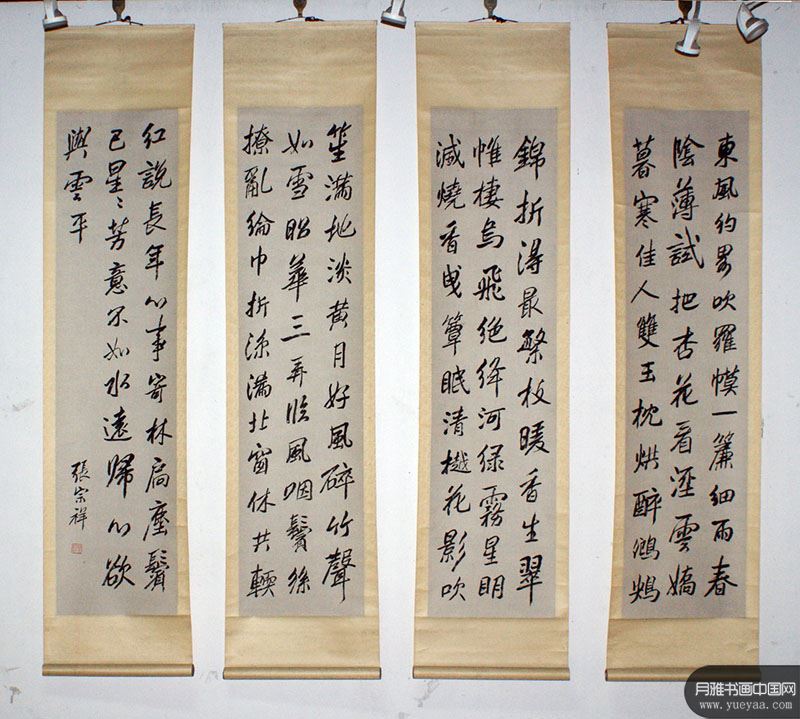 東風約畧吹羅幙一簾細雨春
陰薄試把杏花看溼雲嬌
暮寒佳人雙玉枕烘醉鴛鴦
錦折得最繁枝暖香生翠
帷棲烏飛絕絳河綠霧星明
滅燒香曳簟眠清樾花影吹
笙滿地淡黃月好風碎竹聲
如雪昭華三弄臨風咽鬢絲
撩亂綸巾折涼滿北窗休共輭
紅說長年心事寄林扃塵鬢
已星〻芳意不如水遠歸心欲
與雲平
張宗祥
月雅书画中国网
www.yueyaa.com